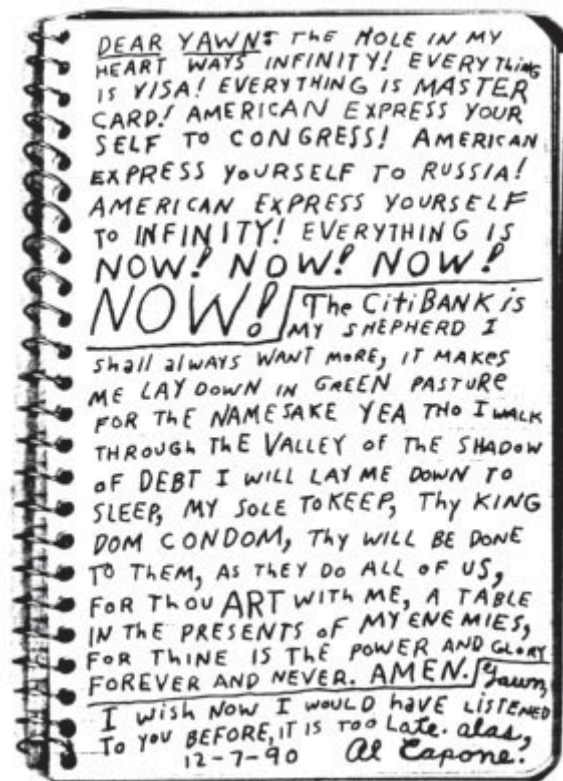 DEAR YAWN: THE HOLE IN MY
HEART WAYS INFINITY! EVERYThiNG
IS VISA! EVERYTHING IS MASTER
CARD! AMERICAN EXPRESS YOUR
SELF TO CONGRESS! AMERICAN
EXPRESS YOURSELF TO RUSSIA!
AMERICAN EXPRESS YOURSELF
To INFINITY! EVERYTHING IS
NOW! NOW! NOW!
NOW! The CitiBANK is
MY SHEPHERD I
shall always WANT MORE, IT MAKES
ME LAY DOWN IN GREEN PASTURE
FOR THE NAMESAKE YEA THO I WALK
THROUGH THE VALLEY of The SHADOW
oF DEBT I WILL LAY ME DOWN TO
SLEEP, MY SOLE TO KEEP, Thy KING
DOM CONDOM, Thy WILL BE DONE
TO ThEM, AS ThEY DO ALL OF US,
FOR ThOU ART WITH ME, A TABLE
IN THE PRESENTS oF MY ENEMIES,
FOR THINE IS THE POWER AND GLORY
FOREVER AND NEVER. AMEN. Yawn,
I WISH NOW I WOULD hAVE LISTENED
To YOU BEFORE, IT IS TOO LATE. alas,
12-7-90 Al Capone.